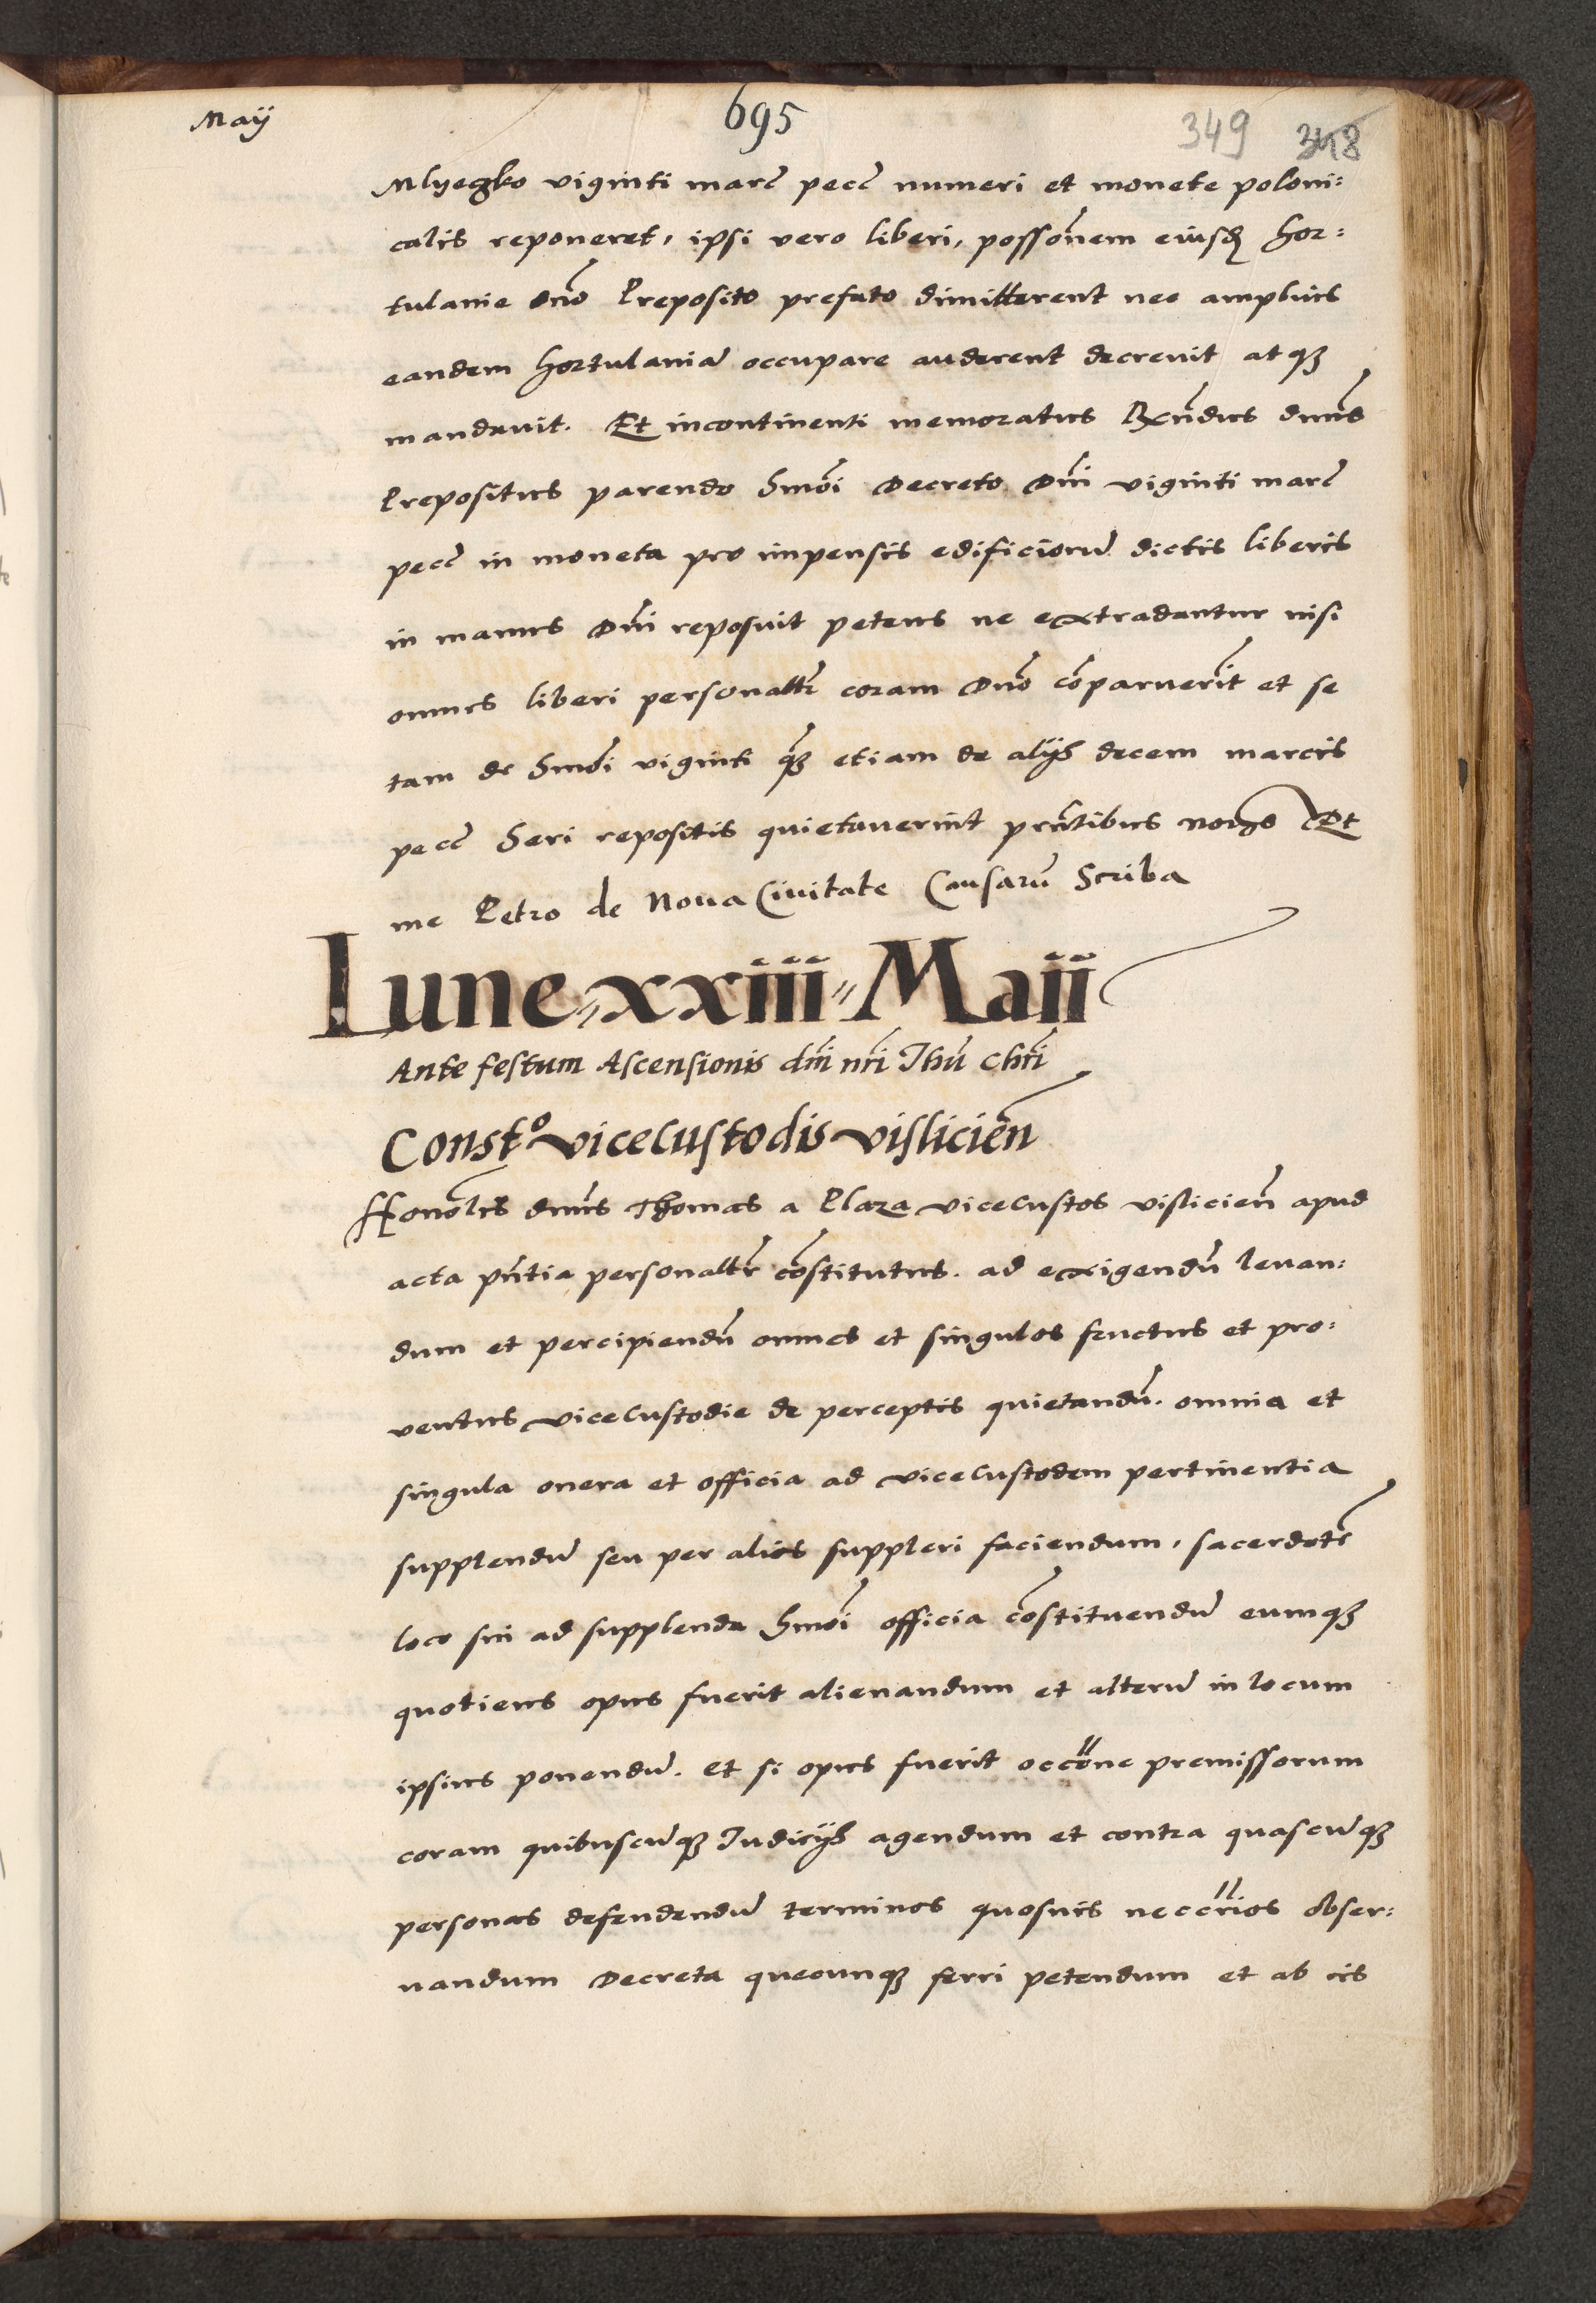 Maij
695
349 348
Mlyegko viginti marc̄ pecc̄ numeri et monete poloni:
calis reponeret, ipsi vero liberi, possōnem eiusd̄ hor:
tulanie Dn̄o Preposito prefato dimitterent nec amplius
eandem hortulaniā occupare auderent decrevit atq̨
mandavit. Et incontinenti memoratus Rn̄dus dn̄us
Prepositus parendo hm̄oi Decreto Dn̄i viginti marc̄
pecc̄ in moneta pro impensis edificiorū dictis liberis
in manus Dn̄i reposuit petens ne extradantur nisi
omnes liberi personaltr̄ coram Dn̄o cōparuerīt et se
tam de hm̄oi viginti q̄ȝ etiam de alijs decem marcis
pecc̄ heri repositis quietaverint pn̄tibus Et
me Petro de Nova Civitate Causarū Scriba
Lune xxiii Maii
Ante festum Ascensionis dn̄i nr̄i Ihū Chr̄i
Const.º vicecustodis vislicien̄
Honōlis dn̄us Thomas a Plaza vicecustos vislicien̄ apud
acta pn̄tia personaltr̄ cōstitutus. ad exigendū levan:
dum et percipiendū omnes et singulos fructus et pro:
ventus vicecustodie de perceptis quietandū. omnia et
singula onera et officia ad vicecustodem pertinentia
supplendū seu per alios suppleri faciendum, sacerdotē
loco sui ad supplenda hm̄oi officia cōstituendū eumq̨
quotiens opus fuerit alienandum et alterū in locum
ipsius ponendū. et si opus fuerit occōne premissorum
coram quibuscūq̨ Iudicijs agendum et contra quascūq̨
personas defendendū terminos quosvis neccr̄ios obser:
vandum Decreta quecunq̨ ferri petendum et ab eis